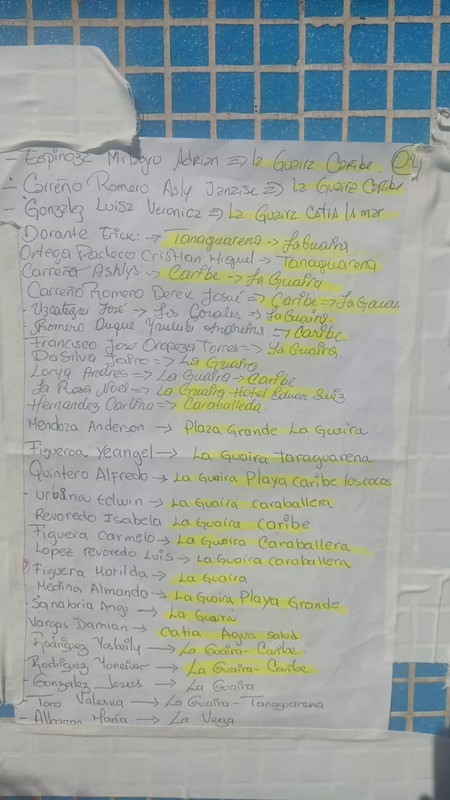 - Espinoza Milagro Adrian => La Guaira Caribe. 04
- Carreño Romero Asly Janzise => La Guaira Caribe
- Gonzalez Luisz Veronica => La Guaira Catia la mar
Dorante Erick: -> Tanaguarena -> La Guaira
Ortega Pacheco Cristian Miguel -> Tanaguarena
Carreño Ashlys -> Caribe -> La Guaira
Carreño Romero Derek Josue => Caribe => La Guaira
- José => Los Corales => La Guaira.
Romero Duque => Caribe.
Francisco José Oropeza Torres => La Guaira.
DaSilva Jairo => La Guaira
Lorya Andres => La Guaira -> Caribe
La Rosa Noel => La Guaira Hotel Eduar Suiz
Hernandez Carlina => Caraballeda.
Mendoza Anderson -> Plaza Grande La Guaira
Figueroa Yeangel -> La Guaira Taraguarena
Quintero Alfredo -> La Guaira Playa Caribe los cocos
- Urbina Edwin -> La Guaira caraballera
Revoredo Isabela La Guaira Caribe
Figueira Carmelo -> La Guaira Caraballera
Lopez revoredo Luis -> La Guaira caraballera
Figuera Matilda -> La Guaira
Medina Almando -> La Guaira Playa Grande
- Sanabria Angi -> La Guaira
Vargas Damian -> Catia Agua salus
Rodriguez Yosbeily -> La Guaira - Caribe
Rodriguez -> La Guaira - Caribe
- Gonzalez Jesus -> La Guaira
- Toro Valeska -> La Guaira - Tanaguarena
- Maria -> La Vega